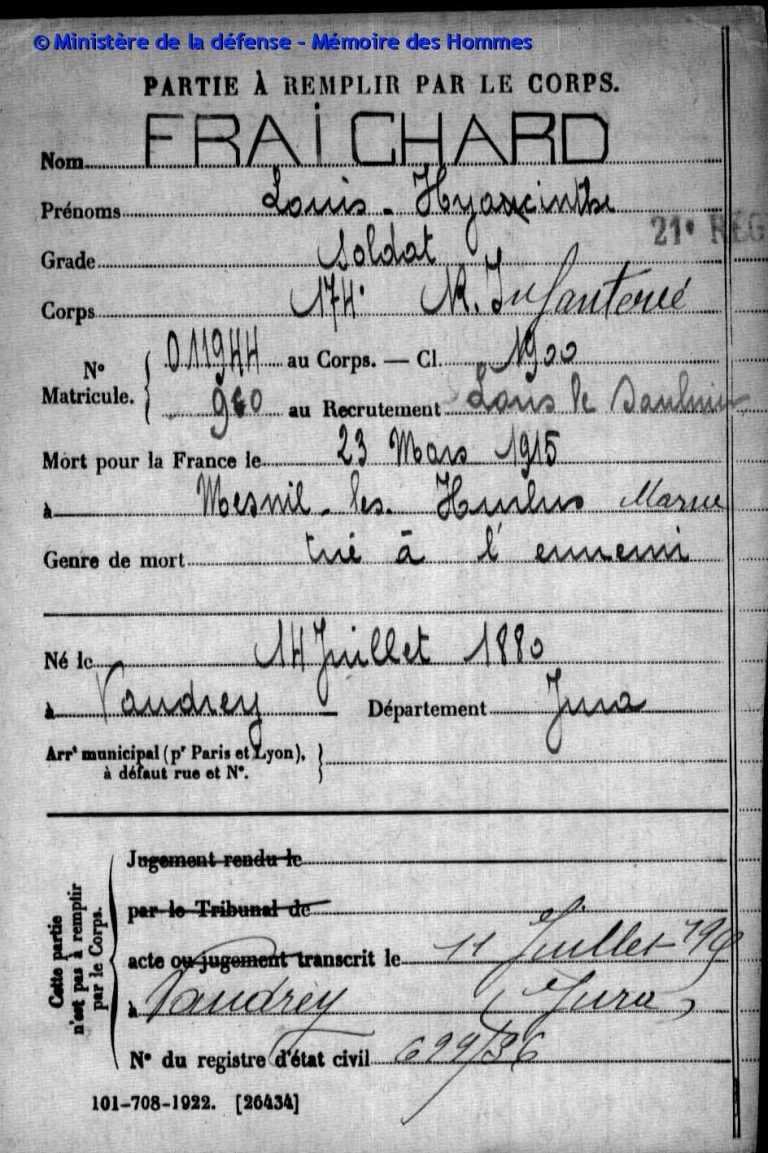 © Ministère de la défense - Mémoire des Hommes
PARTIE À REMPLIR PAR LE CORPS.
Nom FRAICHARD
Prénoms Louis - Hyacinthe
21e REG
Grade Soldat
Corps 174e R. Infanterie
N° Matricule. 011944 au Corps. — Cl. 1900
au Recrutement Lons le Saulnier
Mort pour la France le 23 Mars 1915
à Mesnil-les-Hurlus Marne
Genre de mort tué à l'ennemi
Né le 14 Juillet 1880
à Vaudrey Département Jura
Arrt municipal (pr Paris et Lyon),
à défaut rue et N°.
Cette partie n'est pas à remplir par le Corps.
Jugement rendu le
par le Tribunal de
acte ou jugement transcrit le 11 Juillet
à Vaudrey (Jura)
N° du registre d'état civil 699/36
101-708-1922. [26434]